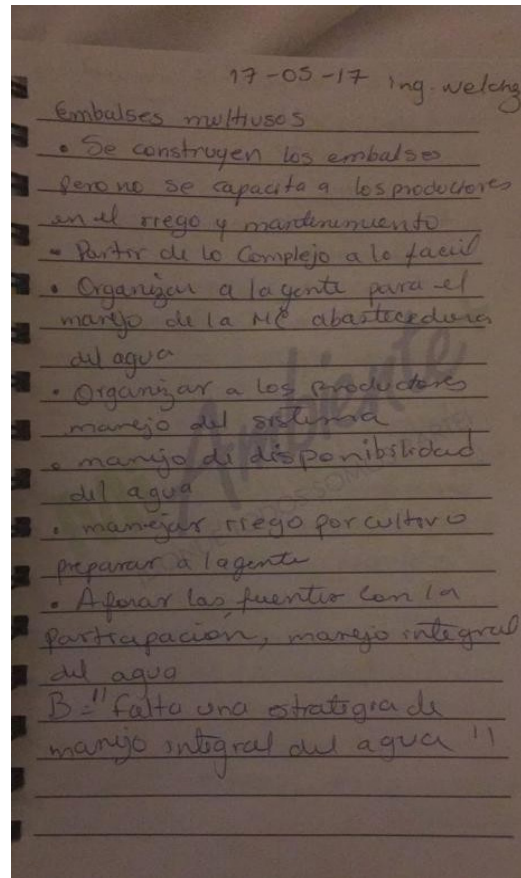 17-05-17 ing. welchz
Embalses multiusos
• Se construyen los embalses
pero no se capacita a los productores
en el riego y mantenimiento
- Partir de lo Complejo a lo facil
• Organizar a la gente para el
manejo de la MC abastecedora
del agua
• Organizar a los productores
manejo del sistema
• manejo de disponibilidad
del agua
• manejar riego por cultivo
preparar a la gente
• Aforar las fuentes con la
participación, manejo integral
del agua
B="falta una estrategia de
manejo integral del agua"
Ambiente